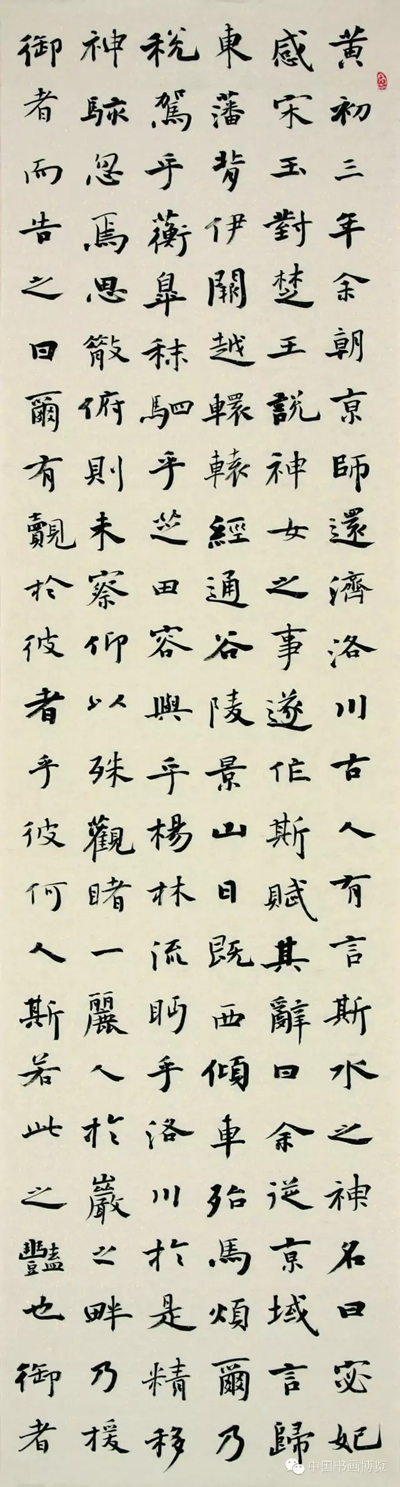 黄初三年余朝京師還濟洛川古人有言斯水之神名曰宓妃
感宋玉對楚王說神女之事遂作斯賦其辭曰余從京域言歸
東藩背伊闕越轘轅經通谷陵景山日既西傾車殆馬煩爾乃
稅駕乎蘅皋秣駟乎芝田容與乎楊林流眄乎洛川於是精移
神駭忽焉思散俯則未察仰以殊觀睹一麗人於巖之畔乃援
御者而告之曰爾有覿於彼者乎彼何人斯若此之豔也御者
中国书画博览